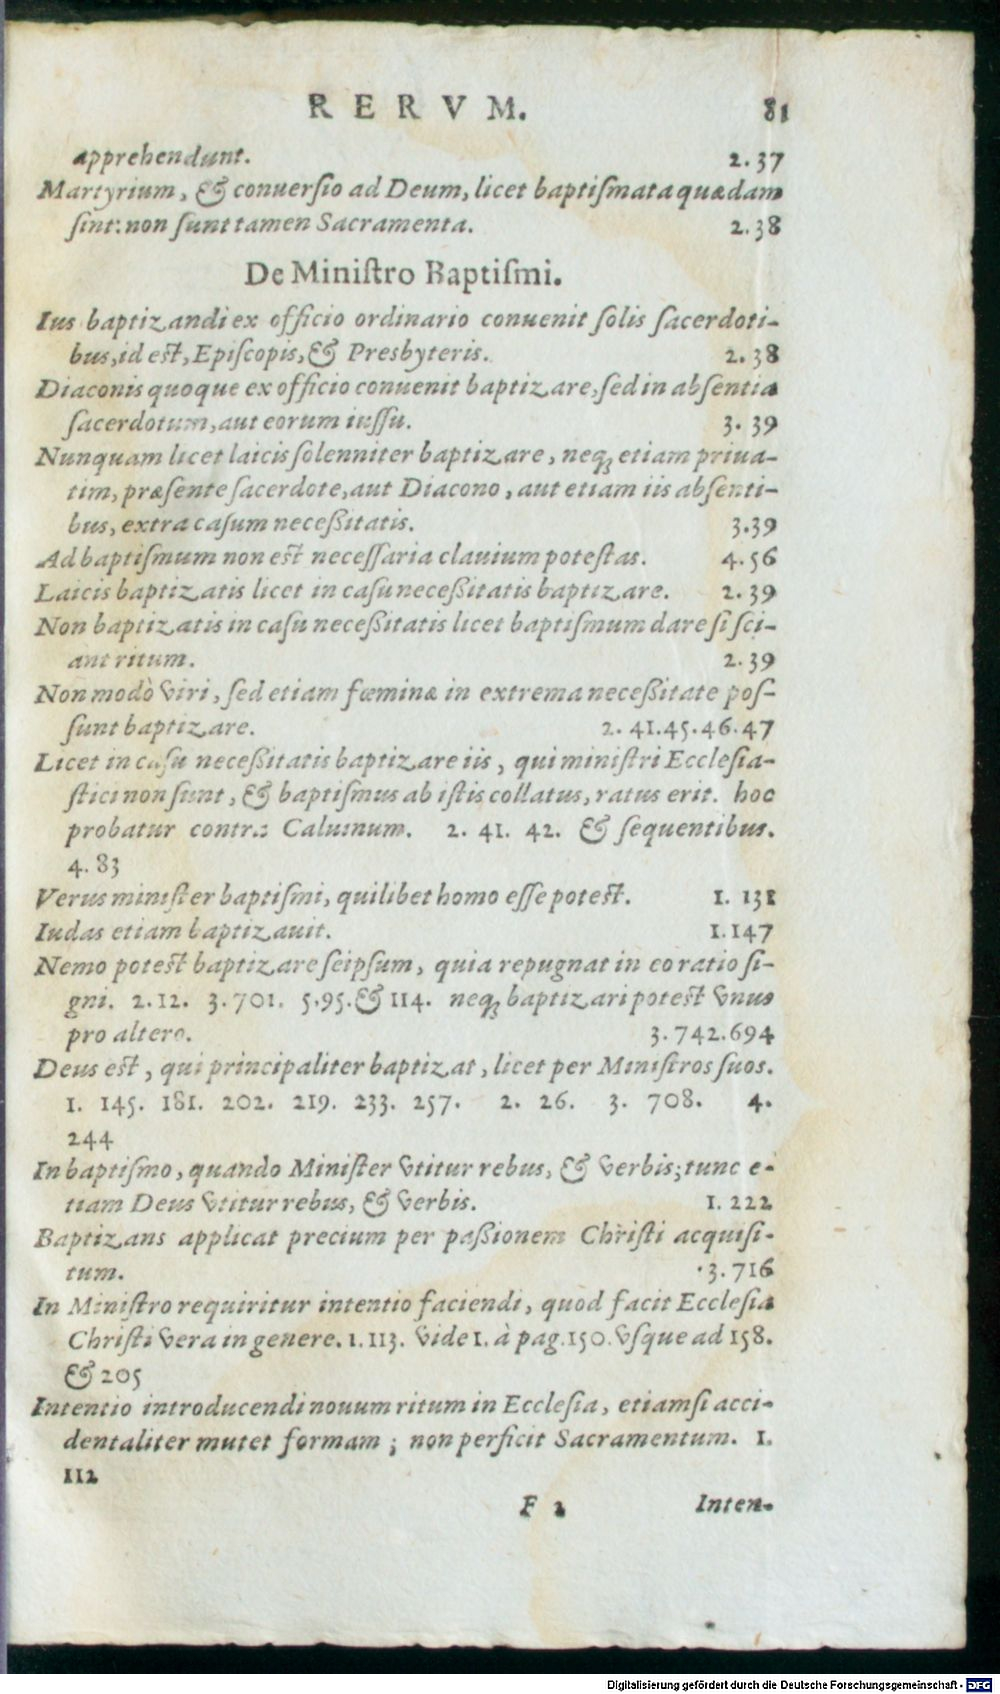 RERVM. 81
apprehendunt. 2.37
Martyrium, & conuersio ad Deum, licet baptismata quædam
sint: non sunt tamen Sacramenta. 2.38
De Ministro Baptismi.
Ius baptizandi ex officio ordinario conuenit solis sacerdoti-
bus, id est, Episcopis, & Presbyteris. 2. 38
Diaconis quoque ex officio conuenit baptizare, sed in absentia
sacerdotum, aut eorum iussu. 3. 39
Nunquam licet laicis solenniter baptizare, neq; etiam priua-
tim, præsente sacerdote, aut Diacono, aut etiam iis absenti-
bus, extra casum necessitatis. 3.39
Ad baptismum non est necessaria clauium potestas. 4.56
Laicis baptizatis licet in casu necessitatis baptizare. 2.39
Non baptizatis in casu necessitatis licet baptismum dare si sci-
ant ritum. 2.39
Non modò viri, sed etiam fœminæ in extrema necessitate pos-
sunt baptizare. 2. 41.45.46.47
Licet in casu necessitatis baptizare iis, qui ministri Ecclesia-
stici non sunt, & baptismus ab istis collatus, ratus erit. hoc
probatur contra Caluinum. 2. 41. 42. & sequentibus.
4. 83
Verus minister baptismi, quilibet homo esse potest. 1. 131
Iudas etiam baptizauit. 1.147
Nemo potest baptizare seipsum, quia repugnat in eo ratio si-
gni. 2.12. 3.701. 5.95. & 114. neq; baptizari potest vnus
pro altero. 3.742.694
Deus est, qui principaliter baptizat, licet per Ministros suos.
1. 145. 181. 202. 219. 233. 257. 2. 26. 3. 708. 4.
244
In baptismo, quando Minister vtitur rebus, & verbis; tunc e-
tiam Deus vtitur rebus, & verbis. 1. 222
Baptizans applicat precium per passionem Christi acquisi-
tum. 3.716
In Ministro requiritur intentio faciendi, quod facit Ecclesia
Christi vera in genere. 1.113. vide 1. à pag.150. vsque ad 158.
& 205
Intentio introducendi nouum ritum in Ecclesia, etiamsi acci-
dentaliter mutet formam; non perficit Sacramentum. 1.
112
F 2 Inten-
Digitalisierung gefördert durch die Deutsche Forschungsgemeinschaft - DFG